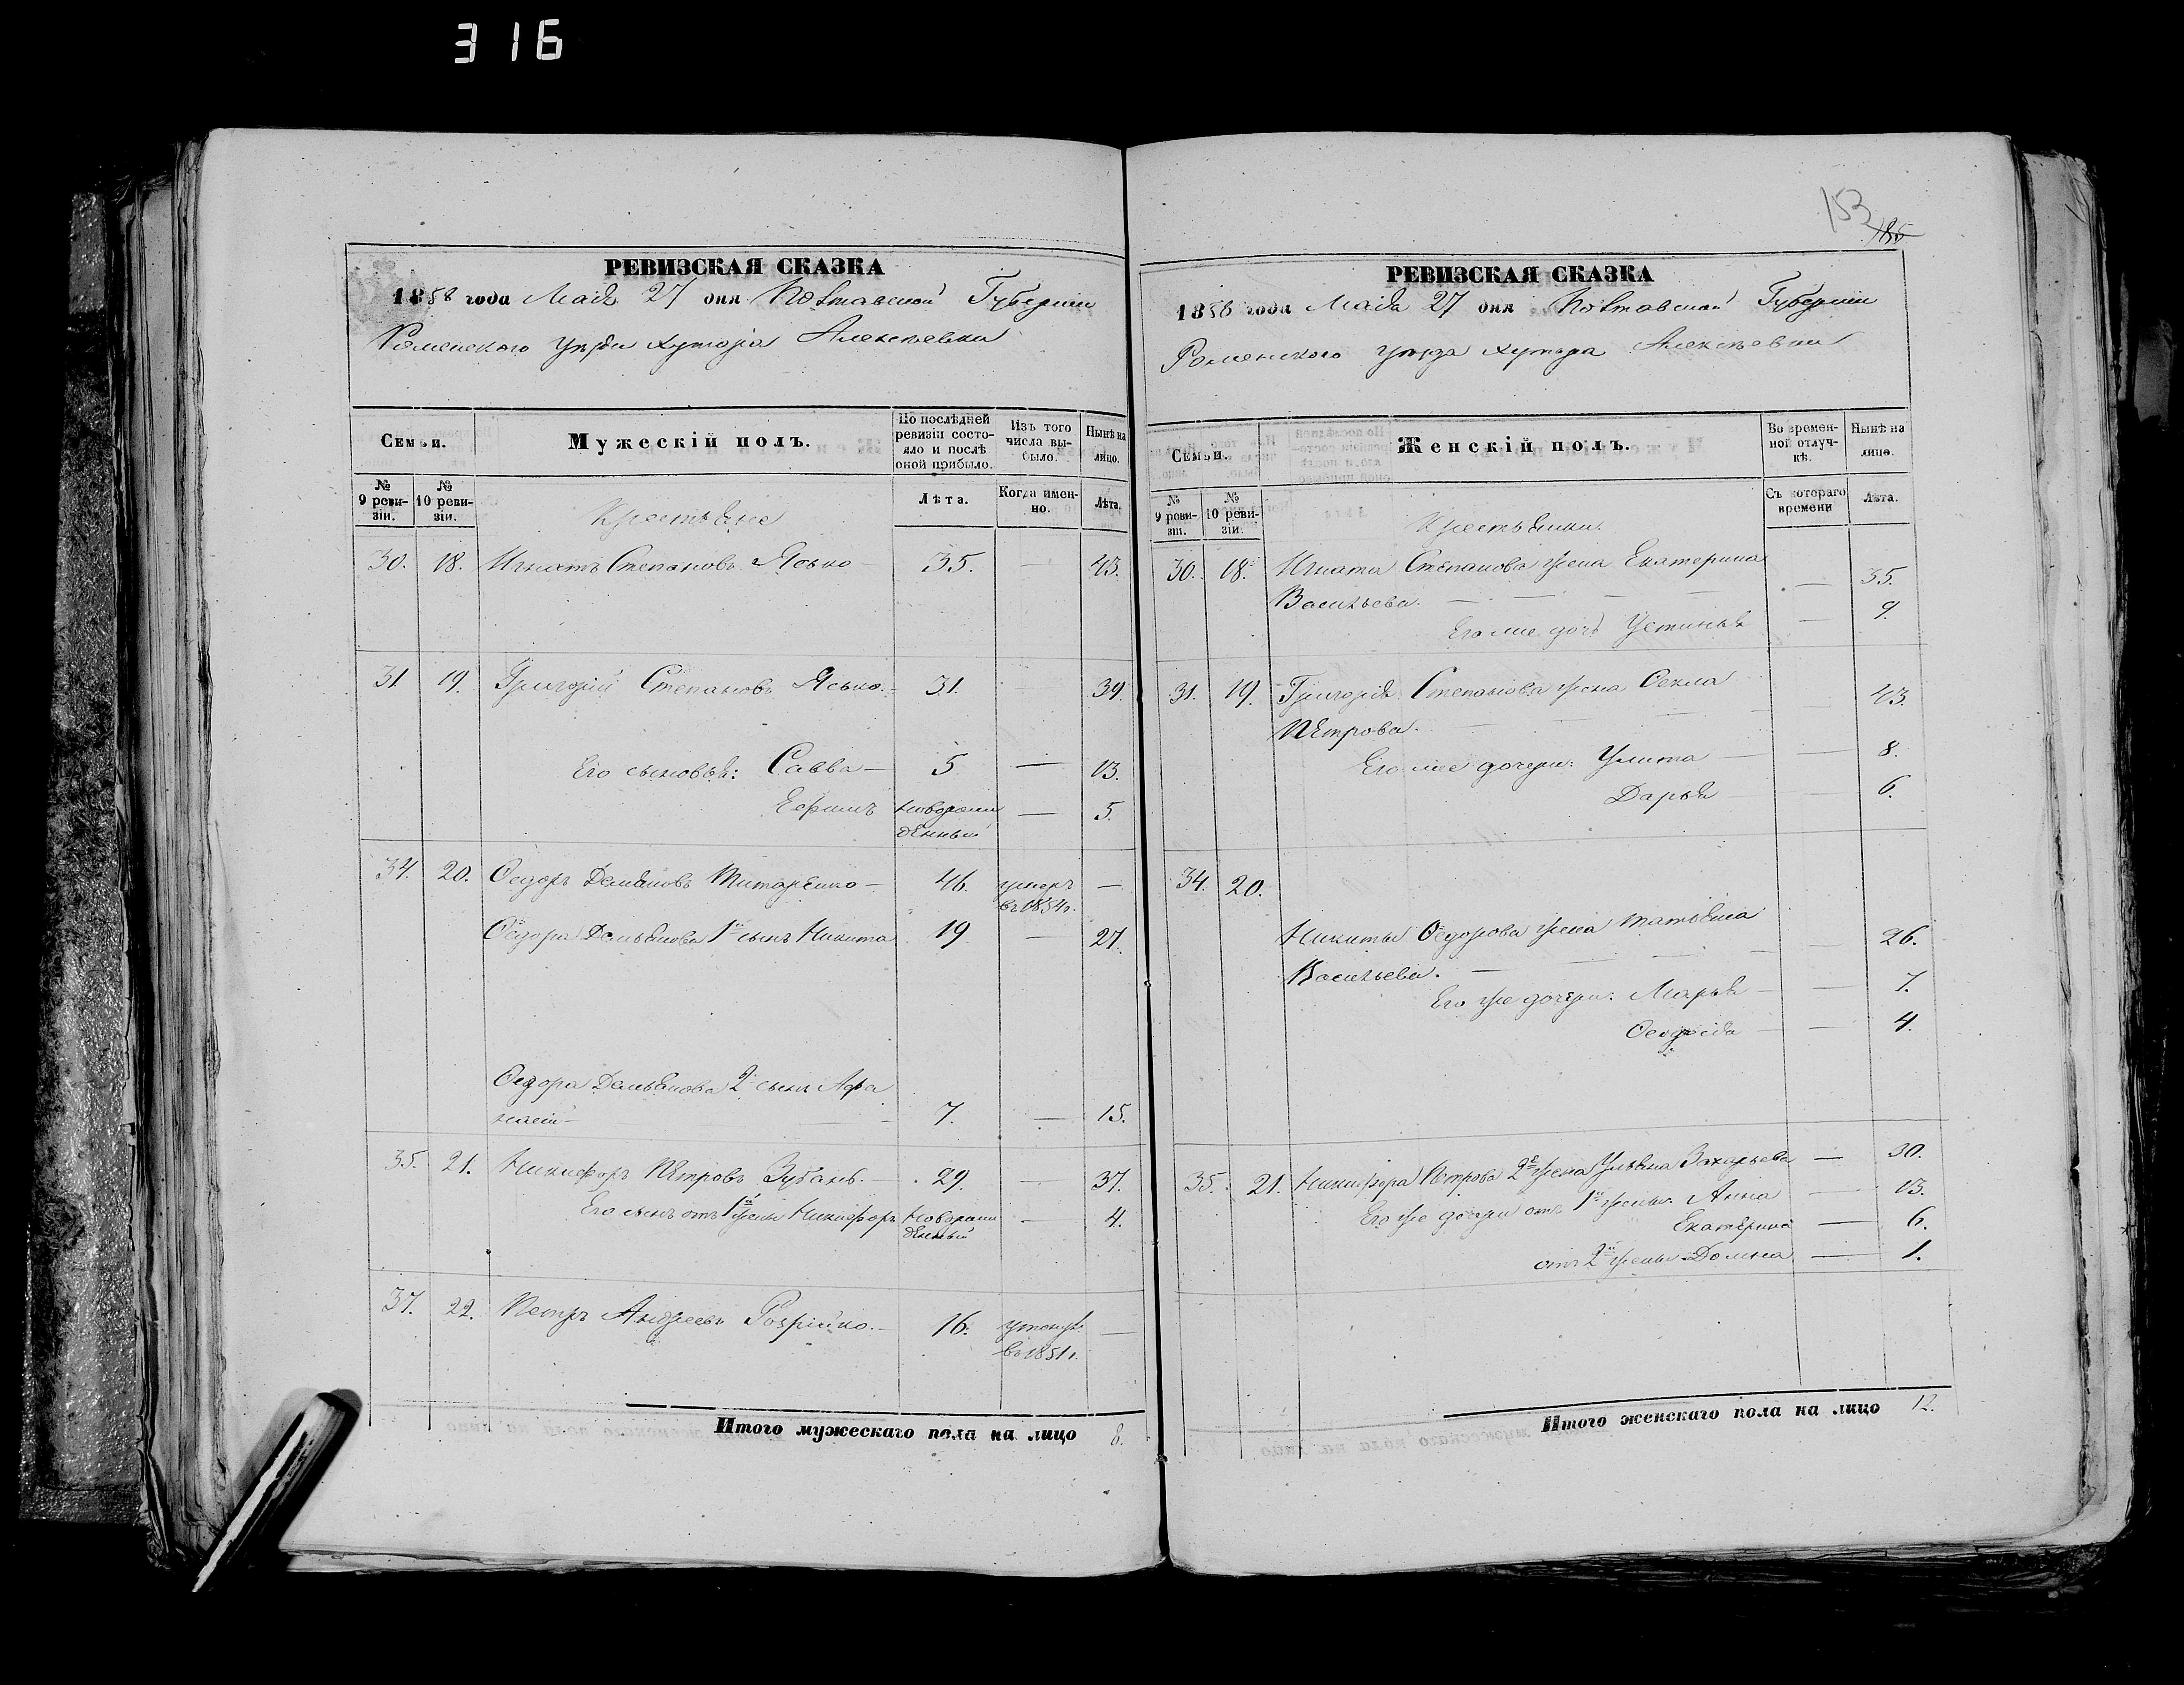 316
РЕВИЗСКАЯ СКАЗКА
1858 года Маія 27 дня Полтавской Губерніи
Роменского Уѣзда хутора Алексѣевки
Семьи.
Мужескій полъ.
По послѣдней ревизіи состояло и послѣ оной прибыло.
Изъ того числа выбыло.
Нынѣ на лицо.
№ 9 ревизіи.
№ 10 ревизіи.
Крестьяне
Лѣта.
Когда именно.
Лѣта.
30. 18. Игнатъ Степановъ Ясько 35. — 43.
31. 19. Григорій Степановъ Ясько. 31. — 39.
Его сыновья: Савва — 5 — 13.
Ефимъ новорож — 5.
денный
34. 20. Ѳедоръ Демьяновъ Титаренко — 46. умеръ —
въ 1854 г.
Ѳедора Демьянова 1й сынъ Никита 19 — 27.
Ѳедора Демьянова 2й сынъ Афа
насій — 7. — 15.
35. 21. Никифоръ Петровъ Зубань. — 29. — 37.
Его сынъ отъ 1й жены Никифоръ новорож — 4.
денный
37. 22. Петръ Андреевъ — 16. —
въ 1851 г.
Итого мужескаго пола на лицо 8.
153
186
РЕВИЗСКАЯ СКАЗКА
1858 года Маія 27 дня Полтавской Губерніи
Роменского уѣзда хутора Алексѣевки
Семьи.
Женскій полъ.
Во временной отлучкѣ.
Нынѣ на лицо.
№ 9 ревизіи.
№ 10 ревизіи.
Крестьянки.
Съ котораго времени
Лѣта.
30. 18. Игната Степанова жена Екатерина
Васильева. — — — — — 35.
Его же дочь Устинья — 9.
31. 19. Григорія Степанова жена Ѳекла 43.
Петрова. — — — —
Его же дочери: Улита — — 8.
Дарья — — 6.
34. 20.
Никиты Ѳедорова жена Татьяна
Васильева. — — — — — 26.
Его же дочери: Марья — — 7.
Ѳеодосія — — 4.
35. 21. Никифора Петрова 2я жена Ульяна Захарьева — 30.
Его же дочери отъ 1й жены: Анна — 13.
Екатерина — 6.
отъ 2й жены Домна — 1.
Итого женскаго пола на лицо 12.